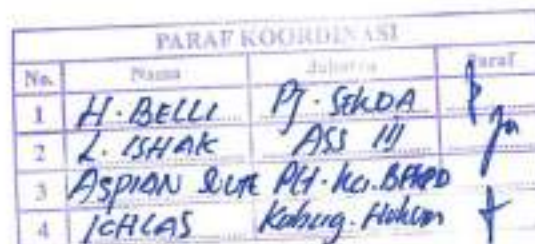 PARAF KOORDINASI
No. Nama Jabatan Paraf
1 H. BELLI Pj. SEKDA
2 L. ISHAK ASS III
3 ASPIAN Plt. Ka. BPKPD
4 ICHLAS Kabag. Hukum